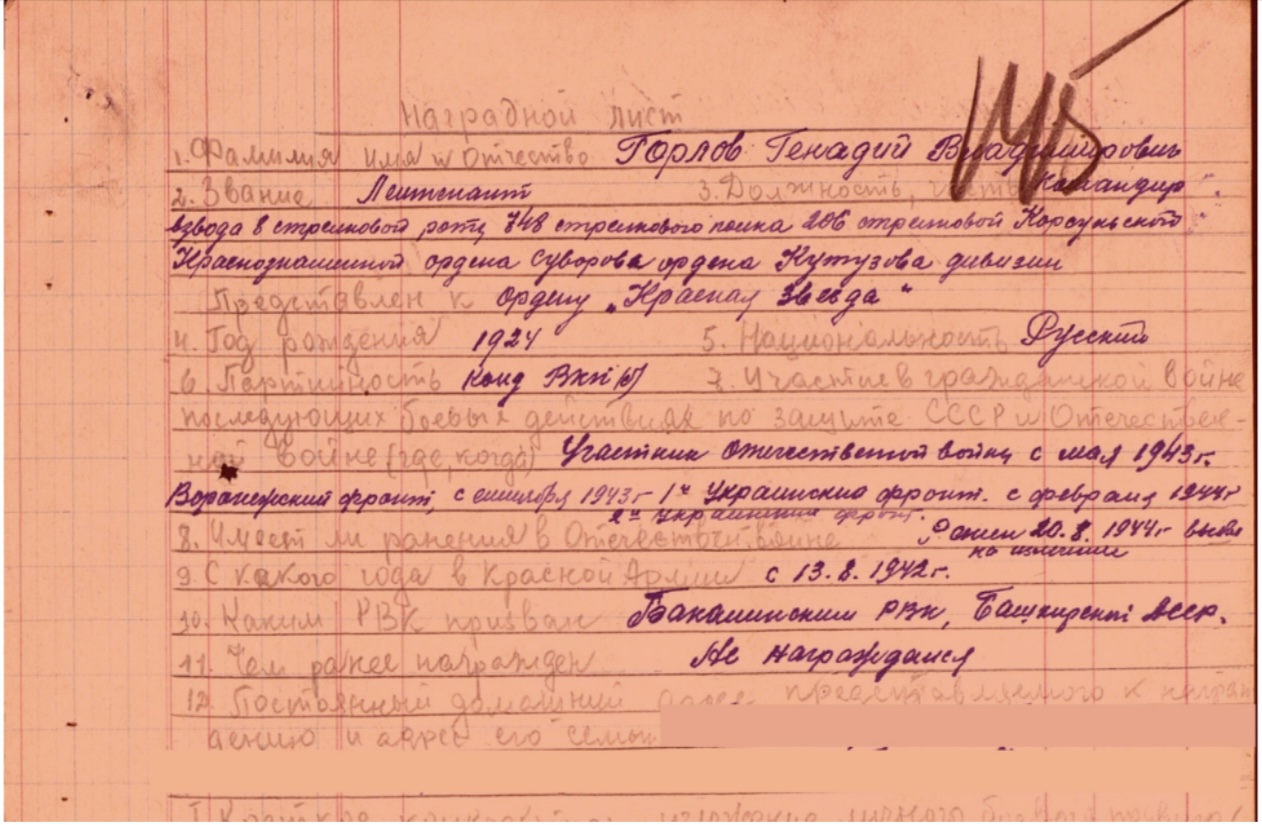 Наградной лист
1. Фамилия имя и Отчество Горлов Генадий Владимирович
2. Звание Лейтенант 3. Должность, часть Командир
взвода 8 стрелковой роты 748 стрелкового полка 206 стрелковой Корсуньской
Краснознаменной ордена Суворова ордена Кутузова дивизии
Представлен к ордену „Красная Звезда“
4. Год рождения 1924 5. Национальность Русский
6. Партийность канд ВКП(б) 7. Участие в гражданской войне
последующих боевых действиях по защите СССР и Отечествен-
ной войне (где, когда) Участник Отечественной войны с мая 1943г.
Воронежский фронт, с 1943г 1й Украинский фронт. с февраля 1944г
2й Украинский фронт.
8. Имеет ли ранения в Отечествен. войне Ранен 20.8.1944г
на излечении
9. С какого года в Красной Армии с 13.8.1942г.
10. Каким РВК призван Бакалинским РВК, Башкирской АССР.
11. Чем ранее награжден Не награждался
12. Постоянный домашний адрес представляемого к награж
дению и адрес его семьи
I. Краткое изложение личного боевого подвига